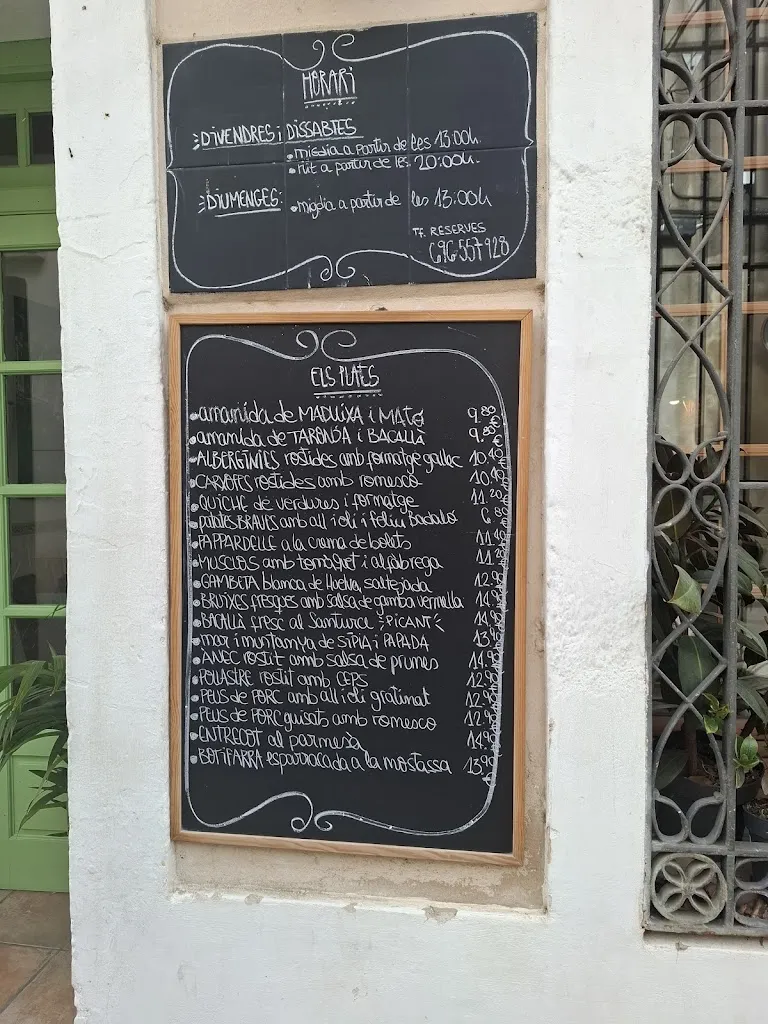 HORARI
DIVENDRES i DISSABTES
• migdia a partir de les 13:00h.
• nit a partir de les 20:00h.
DIUMENGES:
• migdia a partir de les 13:00h
TF. RESERVES
696 557 928
ELS PLATS
• amanida de MADUIXA i MATÓ 9.80
• amanida de TARONJA i BACALLÀ 9.80€
• ALBERGÍNIES rostides amb formatge gallec 10.40€
• CARXOFES rostides amb romesco 10.40€
• QUICHE de verdures i formatge 11.20€
• patates BRAVES amb all i oli i feliu Badaló 6.80€
• PAPPARDELLE a la crema de bolets 11.40€
• MUSCLOS amb tomàquet i alfàbrega 11.20€
• GAMBETA blanca de Huelva saltejada 12.90€
• BRUIXES fresques amb salsa de gamba vermella 14.90€
• BACALLÀ fresc al Santurce PICANT 14.90€
• mar i muntanya de SÍPIA i PAPADA 13.90€
• ANEC rostit amb salsa de prunes 14.90€
• POLLASTRE rostit amb CEPS 12.90€
• PEUS de PORC amb all i oli gratinat 12.90€
• PEUS de PORC guisats amb romesco 12.90€
• ENTRECOT al parmesà 14.90€
• BOTIFARRA esparracada a la mostassa 13.90€